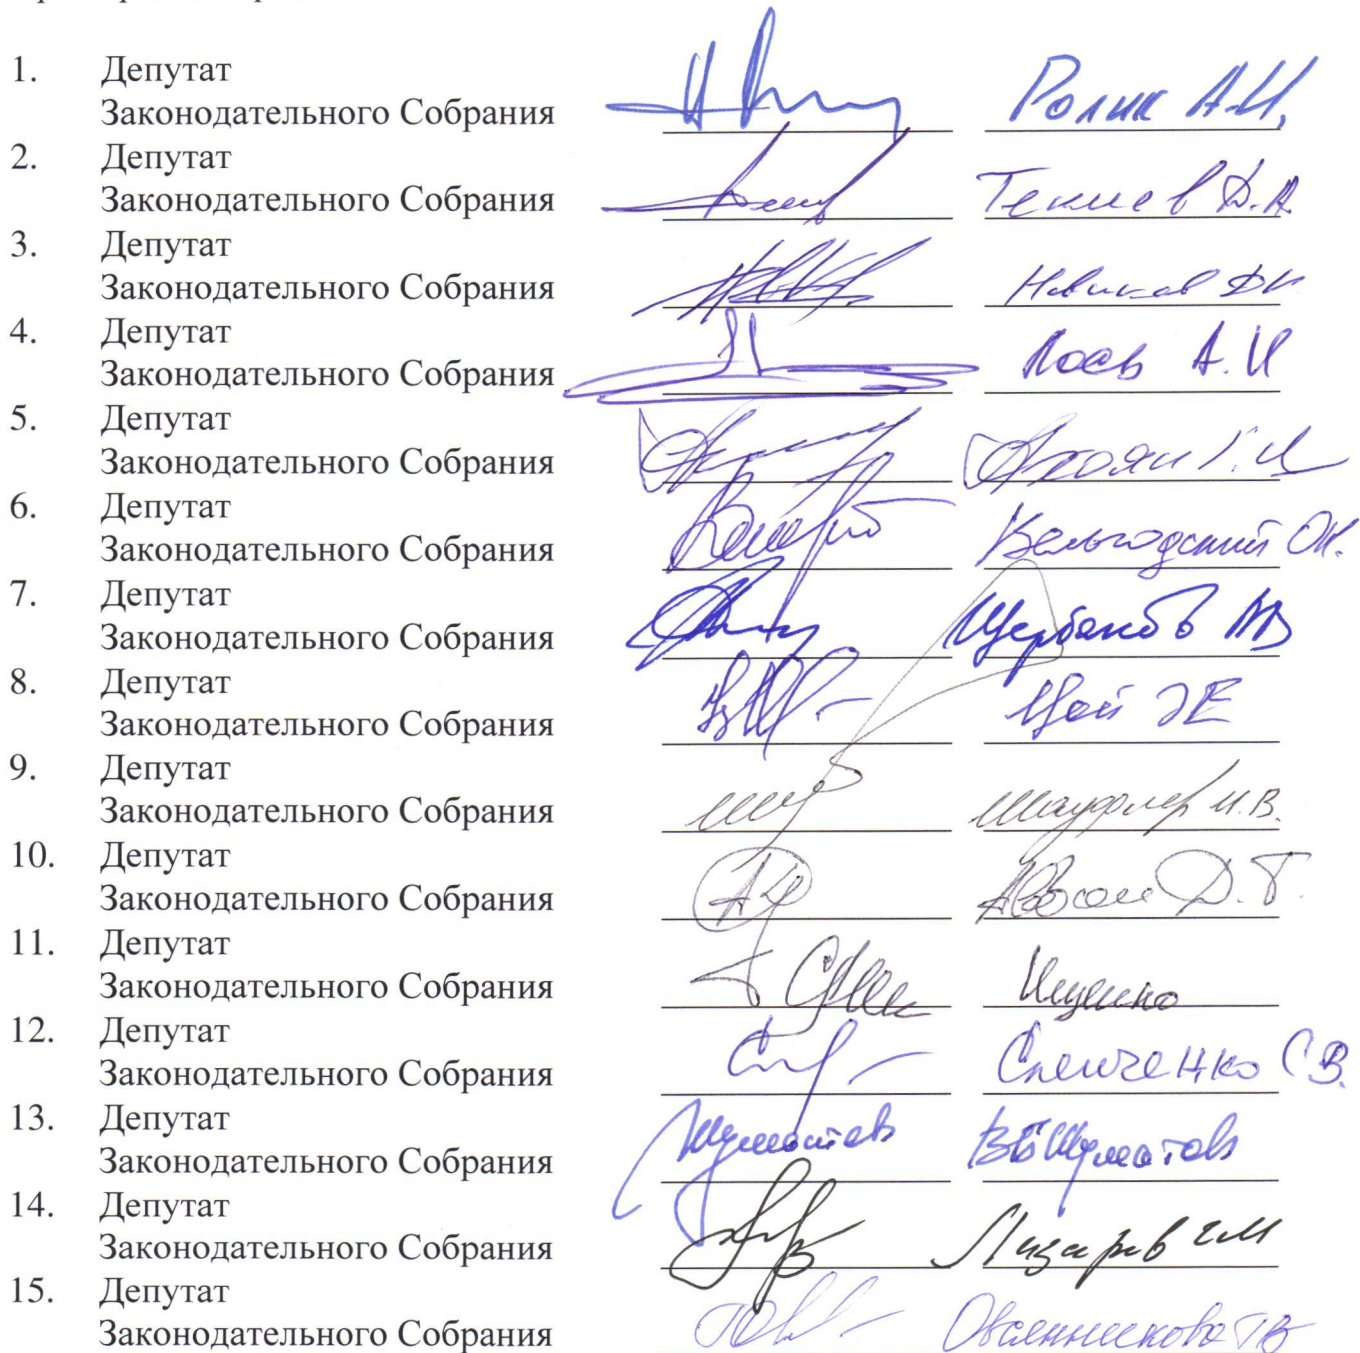 1. Депутат
Законодательного Собрания Ролик А.И.
2. Депутат
Законодательного Собрания Текиев Д.А.
3. Депутат
Законодательного Собрания Новиков ДН
4. Депутат
Законодательного Собрания Лосев А.И
5. Депутат
Законодательного Собрания
6. Депутат
Законодательного Собрания
7. Депутат
Законодательного Собрания Щербаков АВ
8. Депутат
Законодательного Собрания Цой
9. Депутат
Законодательного Собрания И.В.
10. Депутат
Законодательного Собрания Д.Т.
11. Депутат
Законодательного Собрания Ищенко
12. Депутат
Законодательного Собрания С.В.
13. Депутат
Законодательного Собрания Шуматов
14. Депутат
Законодательного Собрания
15. Депутат
Законодательного Собрания Овсянникова ТВ